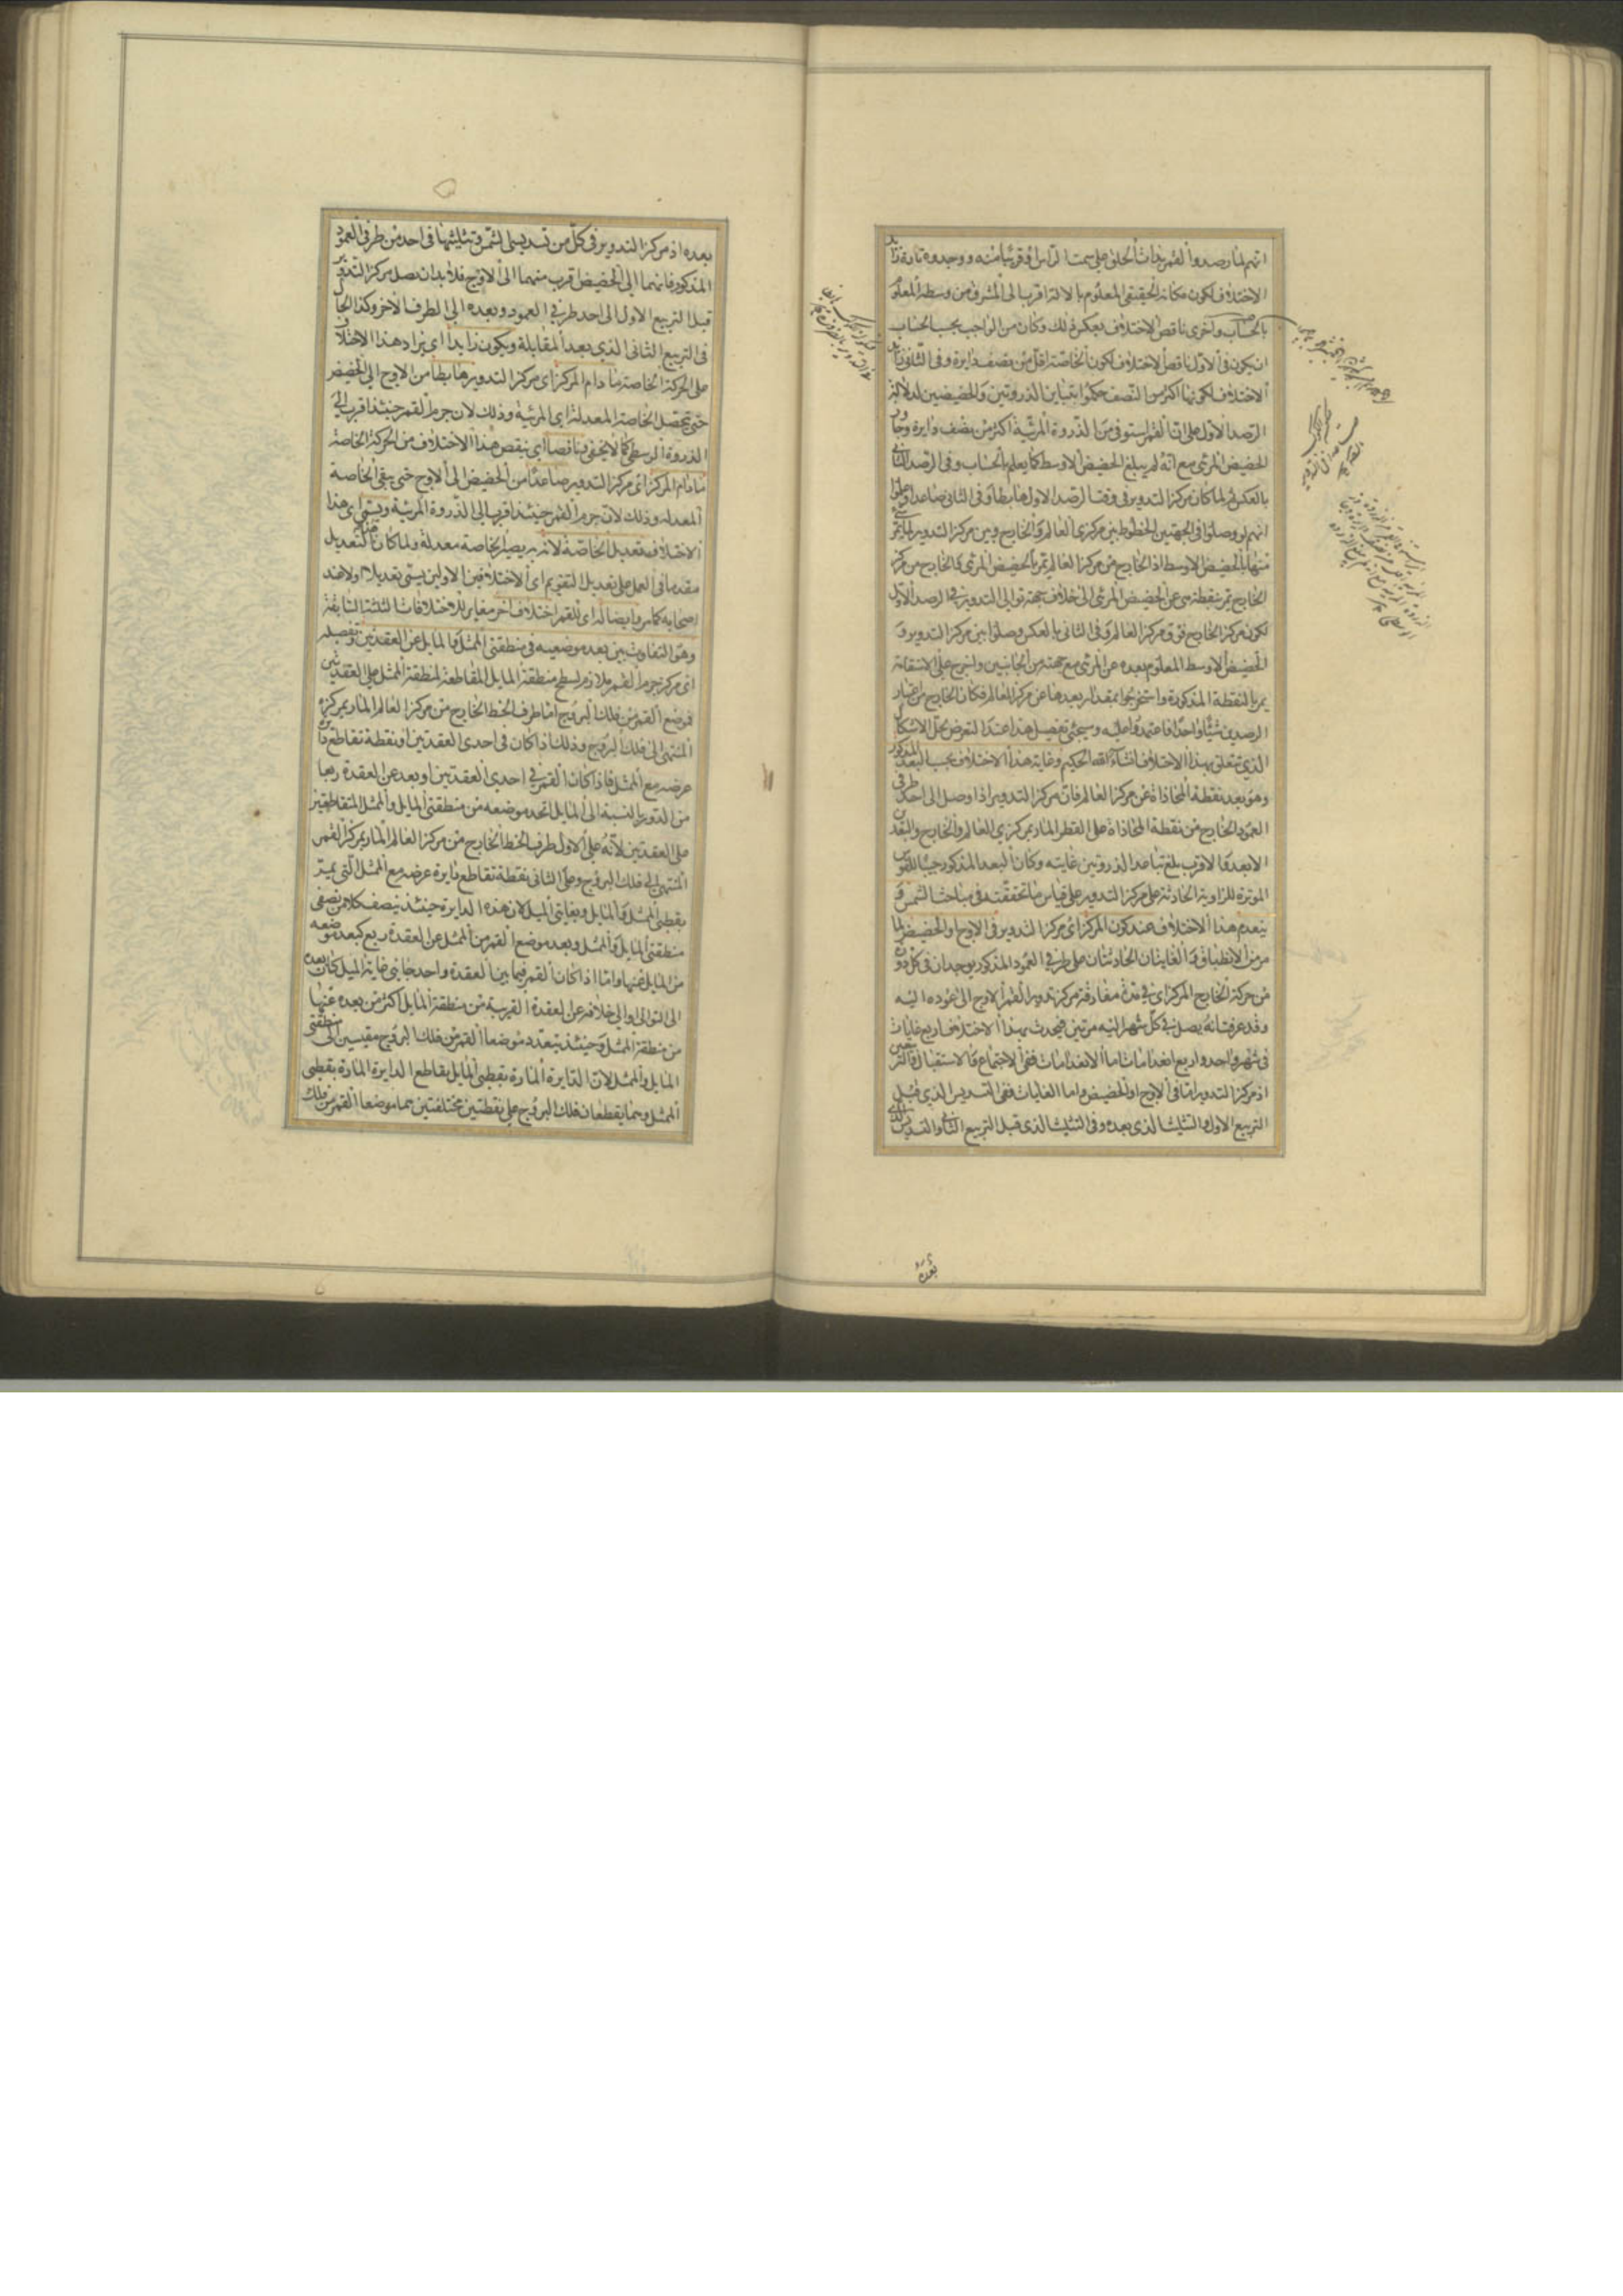 انهم لما رصدوا القمر بذات الحلق على سمت الراس او قريبا منه ووجدوه تارة زائد
الاختلاف لكون مكانه الحقيقى المعلوم بالالة اقرب الى المشرق من وسطه المعلوم
بالحساب واخرى ناقص الاختلاف بعكس ذلك وكان من الواجب بحسب الحساب
ان يكون فى الاول ناقص الاختلاف لكون الخاصة اقل من نصف دايرة وفى الثانى زايد
الاختلاف لكونها اكثر من النصف حكموا بتباين الذروتين والحضيضين لدلالة
الرصد الاول على ان القمر استوفى من الذروة المرئية اكثر من نصف دايرة وجاوز
الحضيض المرئى مع انه لم يبلغ الحضيض الاوسط كما يعلم بالحساب وفى الرصد الثانى
بالعكس ثم لما كان مركز التدوير فى وقت الرصد الاول هابطا وفى الثانى صاعدا وعلموا
انهم لو وصلوا فى الجهتين الخطوط بين مركزى العالم والخارج وبين مركز التدوير لما يمر شئ
منها بالحضيض الاوسط اذ الخارج من مركز العالم يمر بالحضيض المرئى والخارج من مركز
الخارج يمر بنقطة هى عن الحضيض المرئى الى خلاف جهة توالى التدوير فى الرصد الاول
لكون مركز الخارج فوق مركز العالم وفى الثانى بالعكس وصلوا بين مركز التدوير و
الحضيض الاوسط المعلوم بعده عن المرئى مع جهته من الجانبين واخرج على الاستقامة
يمر بالنقطة المذكورة واستخرجوا مقدار بعدها عن مركز العالم فكان الخارج من اعتبار
الرصدين شيئا واحدا فاعتمدوا عليه وسيجئ تفصيل هذا عند التعرض لحل الاشكال
الذى تتعلق بهذا الاختلاف انشاء الله الحكيم وغاية هذا الاختلاف بحسب البعد المذكور
وهو بعد نقطة المحاذاة عن مركز العالم فان مركز التدوير اذا وصل الى احد طرفى
العمود الخارج من نقطة المحاذاة على القطر المار بمركزى العالم والخارج والبعدين
الابعد والاقرب بلغ تباعد الذروتين غايته وكان البعد المذكور جيبا للقوس
الموترة للزاوية الحادثة على مركز التدوير على قياس ما تحققته فى مباحث الشمس و
ينعدم هذا الاختلاف عند كون المركز اى مركز التدوير فى الاوج والحضيض لما
مر من الانطباق والغايتان الحادثتان على طرفى العمود المذكور يوجدان فى كل دورة
من حركة الخارج المركز اى فى مدة مفارقة مركز تدوير القمر الاوج الى عوده اليه
وقد عرفت انه يصل فى كل شهر اليه مرتين فيحدث بهذا الاختلاف اربع غايات
فى شهر واحد واربع انعدامات اما الانعدامات ففى الاجتماع والاستقبال والتربيعين
اذ مركز التدوير اما فى الاوج او الحضيض واما الغايات ففى التسديس الذى قبل
التربيع الاول والتثليث الذى بعده وفى التثليث الذى قبل التربيع الثانى والتسديس الذى
بعده
بعده اذ مركز التدوير فى كل من تسديسى الشمس وتثليثها فى احد من طرفى العمود
المذكور فانهما الى الحضيض اقرب منهما الى الاوج فلا بد ان يصل مركز التدوير
قبل التربيع الاول الى احد طرفى العمود وبعده الى الطرف الاخر وكذا الحال
فى التربيع الثانى الذى بعد المقابلة ويكون زايدا اى يزاد هذا الاختلاف
على الحركة الخاصة ما دام المركز اى مركز التدوير هابطا من الاوج الى الحضيض
حتى تحصل الخاصة المعدلة اى المرئية وذلك لان جرم القمر حينئذ اقرب الى
الذروة الوسطى كما لا يخفى وناقصا اى ينقص هذا الاختلاف من الحركة الخاصة
ما دام المركز اى مركز التدوير صاعدا من الحضيض الى الاوج حتى يبقى الخاصة
المعدلة وذلك لان جرم القمر حينئذ اقرب الى الذروة المرئية ويسمى اى هذا
الاختلاف تعديل الخاصة لانه به يصير الخاصة معدلة ولما كان هذا التعديل
مقدما فى العمل على تعديل التقويم اى الاختلافين الاولين يسمى تعديلا اولا عند
اصحابه كما مر وايضا له اى للقمر اختلاف اخر مغاير للاختلافات الثلثة السابقة
وهو التفاوت بين بعد موضعيه فى منطقتى الممثل والمايل عن العقدتين وتفصيله
ان مركز جرم القمر ملازم لسطح منطقة المايل المقاطعة لمنطقة الممثل على العقدتين
فموضع القمر من فلك البروج اما طرف الخط الخارج من مركز العالم المار بمركزه
المنتهى الى فلك البروج وذلك اذا كان فى احدى العقدتين او نقطة تقاطع دايرة
عرضه مع الممثل فاذا كان القمر فى احدى العقدتين او بعد عن العقدة ربعا
من الدور بالنسبة الى المايل اتحد موضعه من منطقتى المايل والممثل المتقاطعين
على العقدتين لانه على الاول طرف الخط الخارج من مركز العالم المار بمركز القمر
المنتهى الى فلك البروج وعلى الثانى نقطة تقاطع دايرة عرضه مع الممثل التى تمر
بقطبى الممثل والمايل وبغايتى الميل لان هذه الدايرة حينئذ تنصف كلا من نصفى
منطقتى المايل والممثل وبعد موضع القمر من الممثل عن العقدة ربع كبعد موضعه
من المايل عنها واما اذا كان القمر فيما بين العقدة واحد جانبى غاية الميل كان بعده
الى التوالى او الى خلافه عن العقدة القريبة من منطقة المايل اكثر من بعده عنها
من منطقة الممثل وحينئذ يتعدد موضعا القمر من فلك البروج مقيسين الى منطقتى
المايل والممثل لان الدايرة المارة بقطبى المايل يقاطع الدايرة المارة بقطبى
الممثل وهما يقطعان فلك البروج على نقطتين مختلفتين هما موضعا القمر من فلك